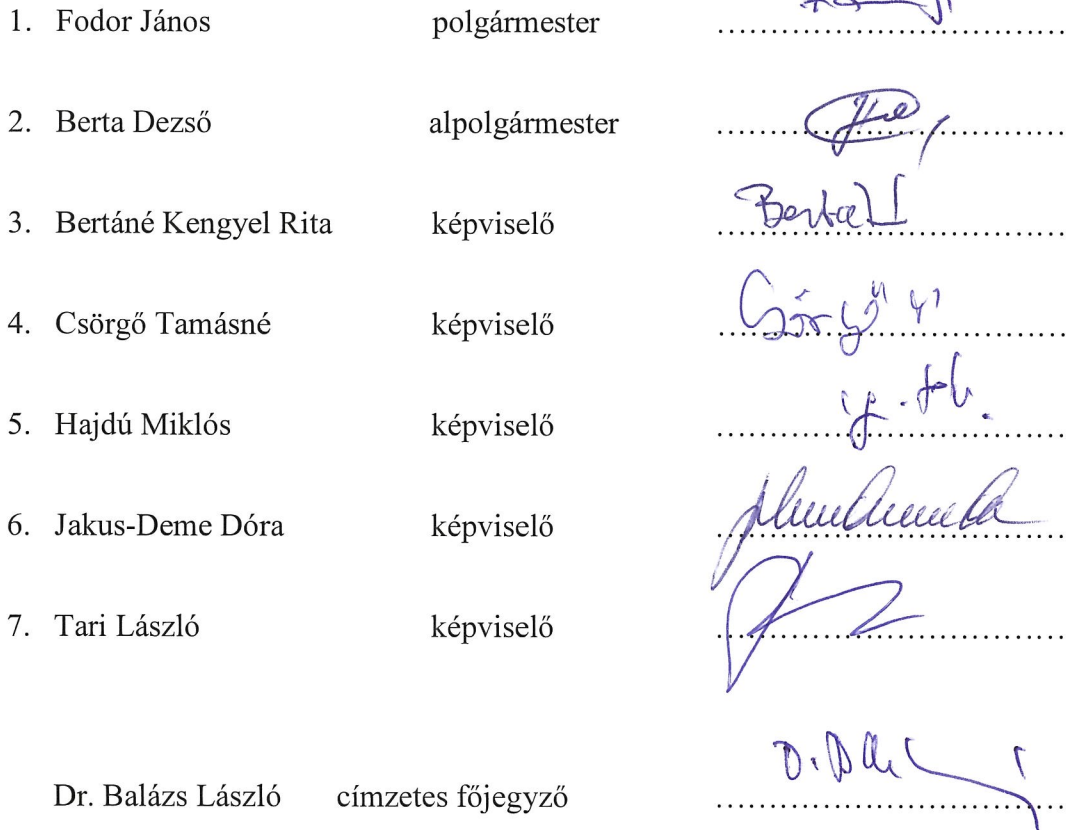 1. Fodor János polgármester ........................................
2. Berta Dezső alpolgármester ........................................
Berta
3. Bertáné Kengyel Rita képviselő ........................................
Csörgő
4. Csörgő Tamásné képviselő ........................................
5. Hajdú Miklós képviselő ........................................
6. Jakus-Deme Dóra képviselő ........................................
7. Tari László képviselő ........................................
Dr. Balázs László címzetes főjegyző ........................................